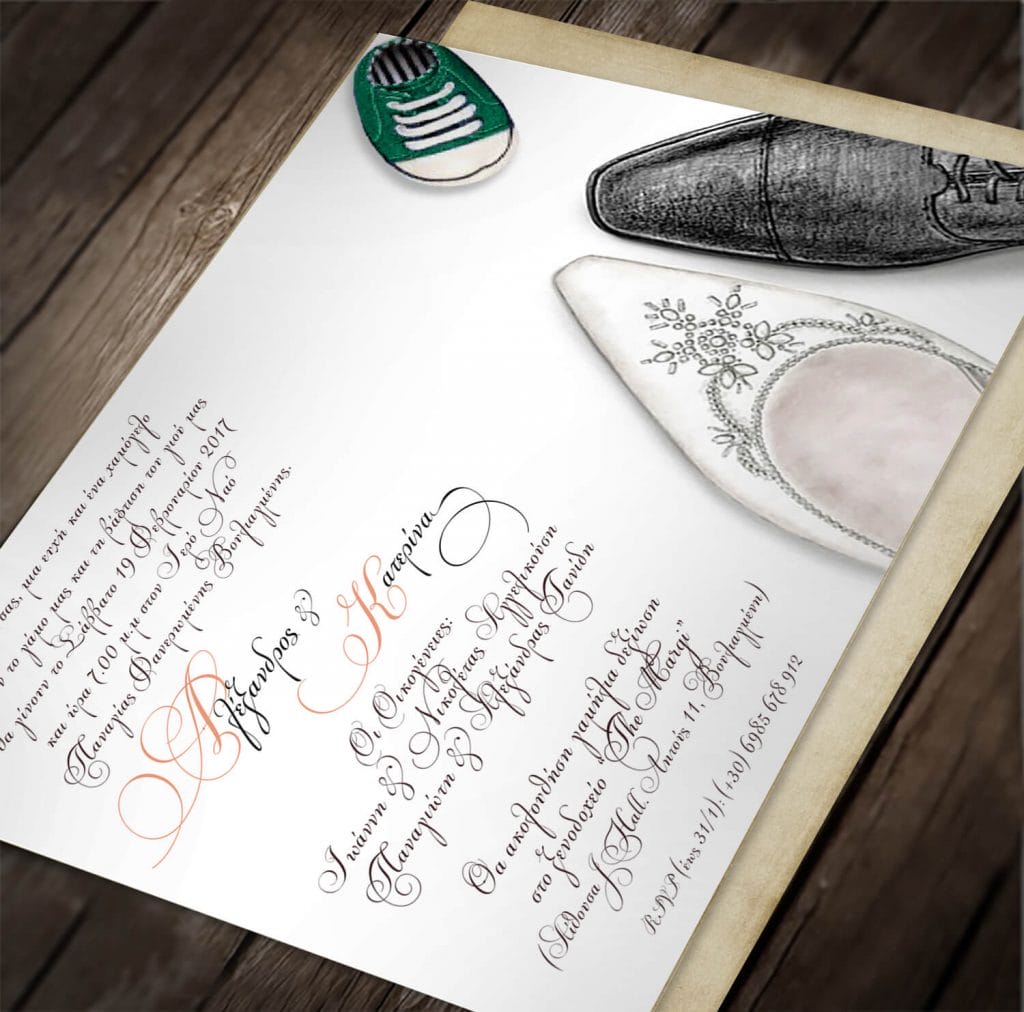 σας, μια ευχή και ένα χαμόγελο
το γάμο μας και τη βάφτιση του γιού μας
θα γίνουν το Σάββατο 19 Φεβρουαρίου 2017
και ώρα 7.00 μ.μ στον Ιερό Ναό
Παναγίας Φανερωμένης Βουλιαγμένης.
Αλέξανδρος & Κατερίνα
Οι Οικογένειες:
Ιωάννη & Νικολέτας Αγγελικούση
Παναγιώτη & Αλεξάνδρας
Θα ακολουθήση γαμήλια δεξίωση
στο ξενοδοχείο "The Margi"
(Αίθουσα J Hall. Λητούς 11, Βουλιαγμένη)
RSVP (έως 31/1): (+30) 6985 678 912